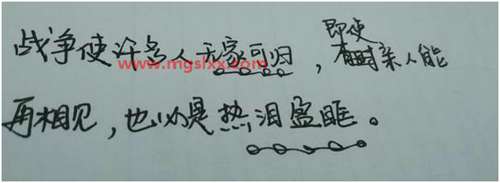 战争使许多人无家可归，即使亲人能
再相见，也必是热泪盈眶。
www.mgslxx.com